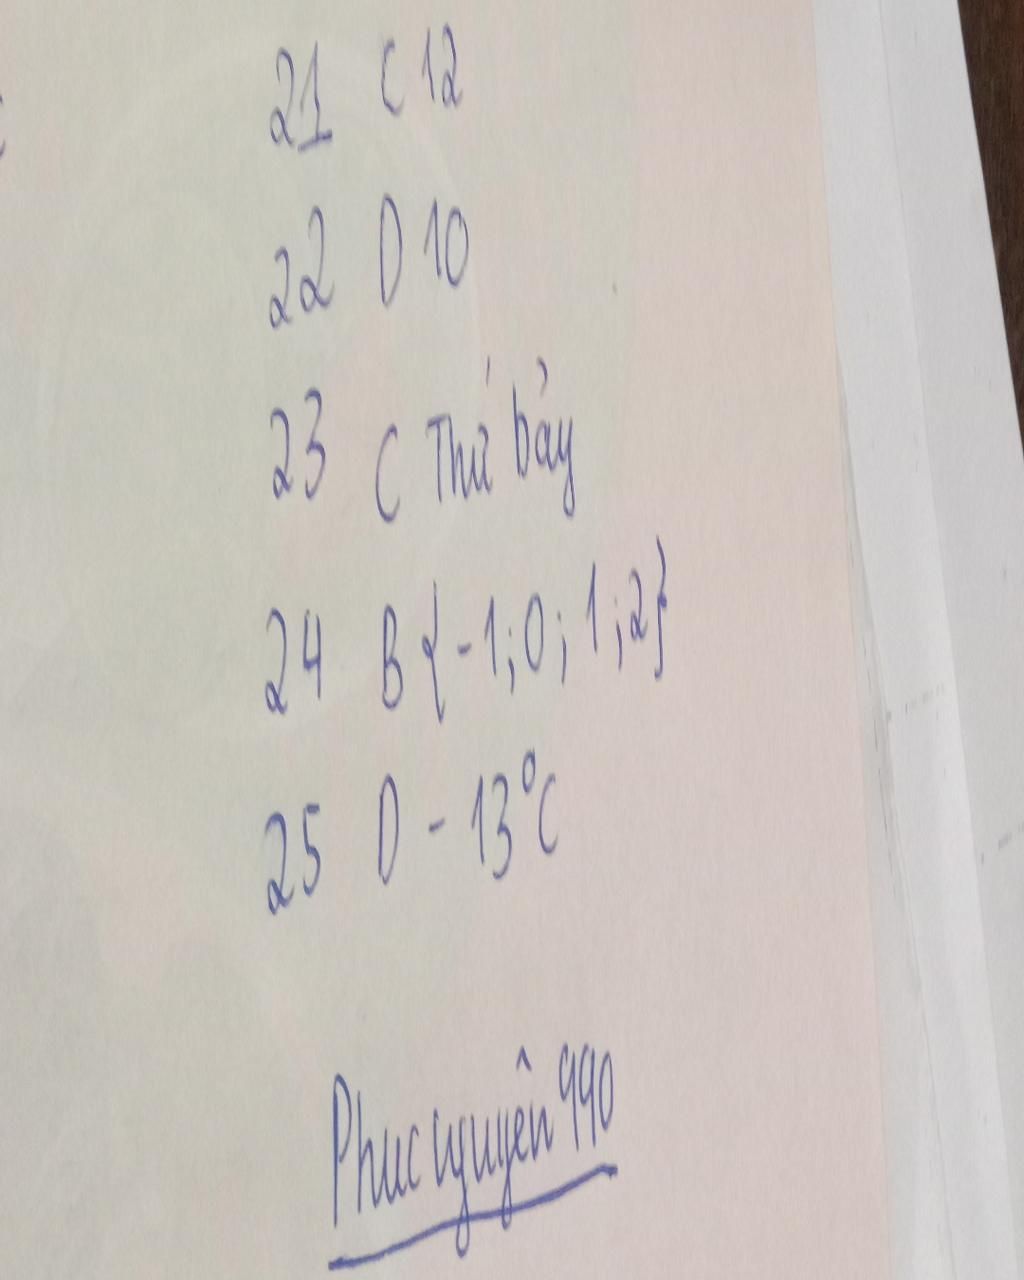 21 C 12
22 D 10
23 C Thứ bảy
24 B {-1; 0; 1; 2}
25 D - 13°C
Phuc nguyên 990